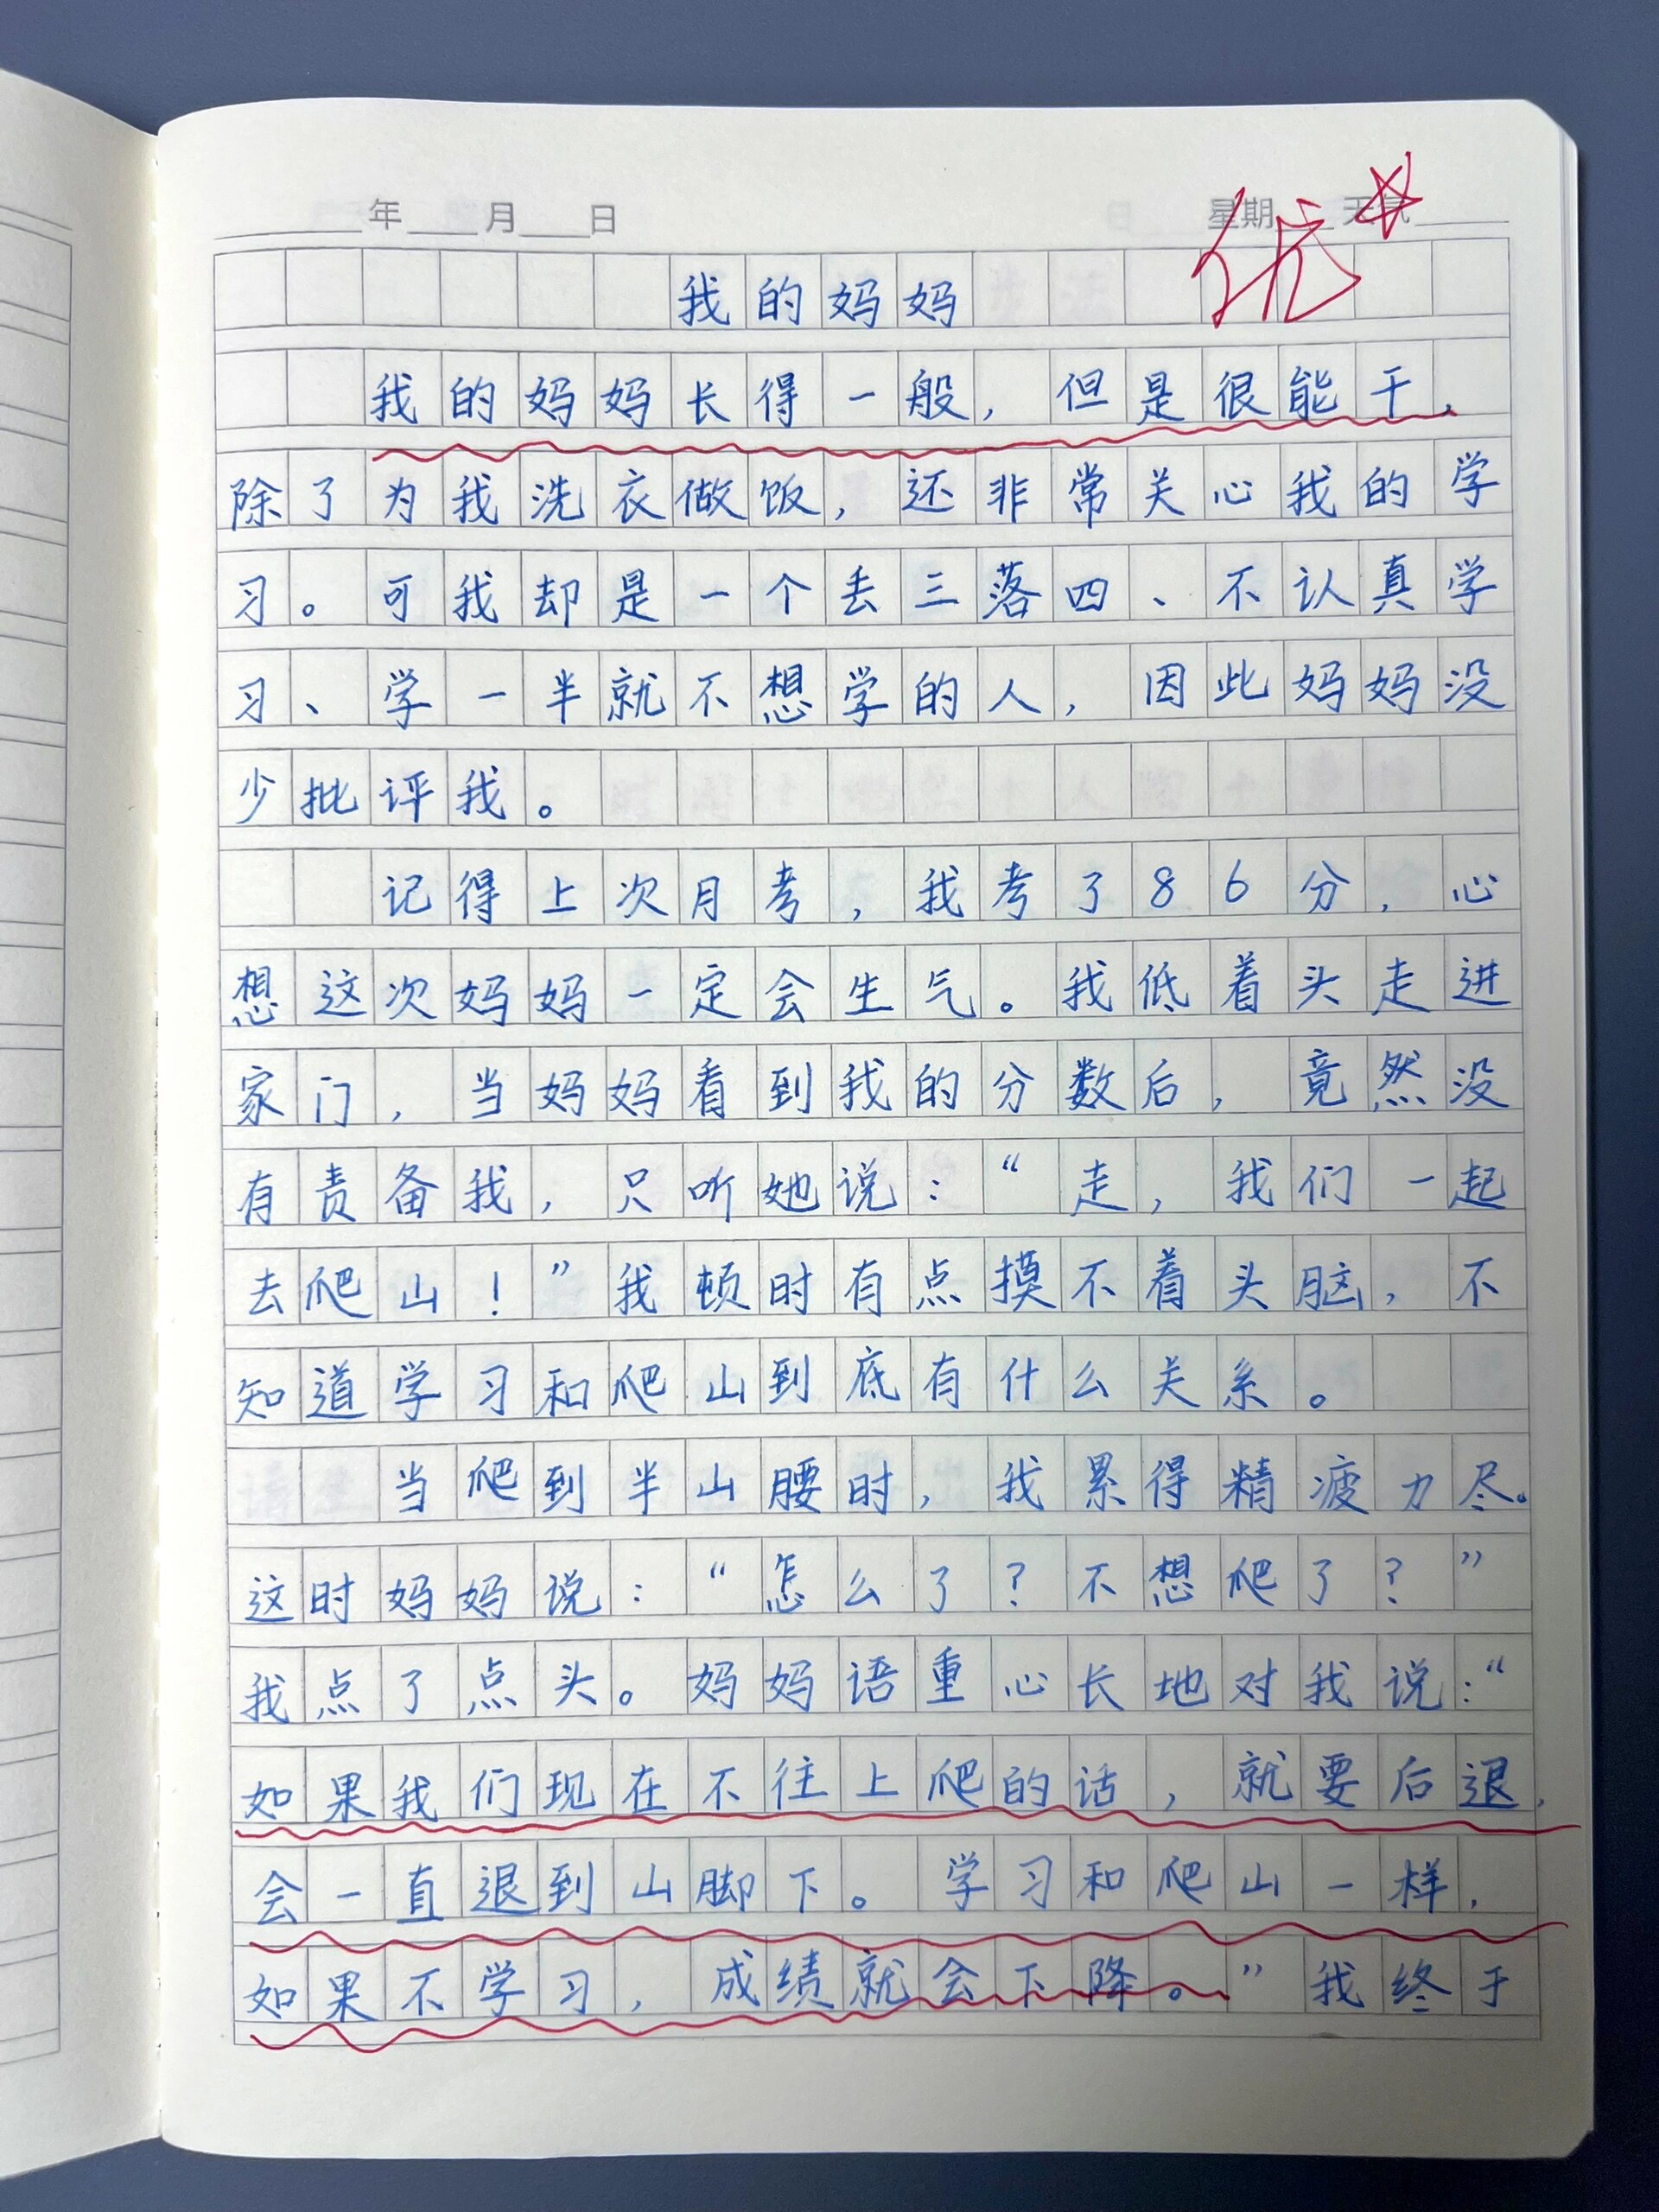 年 月 日 星期 天气
优
我的妈妈
我的妈妈长得一般，但是很能干，
除了为我洗衣做饭，还非常关心我的学
习。可我却是一个丢三落四、不认真学
习、学一半就不想学的人，因此妈妈没
少批评我。
记得上次月考，我考了86分，心
想这次妈妈一定会生气。我低着头走进
家门，当妈妈看到我的分数后，竟然没
有责备我，只听她说：“走，我们一起
去爬山！”我顿时有点摸不着头脑，不
知道学习和爬山到底有什么关系。
当爬到半山腰时，我累得精疲力尽。
这时妈妈说：“怎么了？不想爬了？”
我点了点头。妈妈语重心长地对我说：“
如果我们现在不往上爬的话，就要后退，
会一直退到山脚下。学习和爬山一样，
如果不学习，成绩就会下降。”我终于